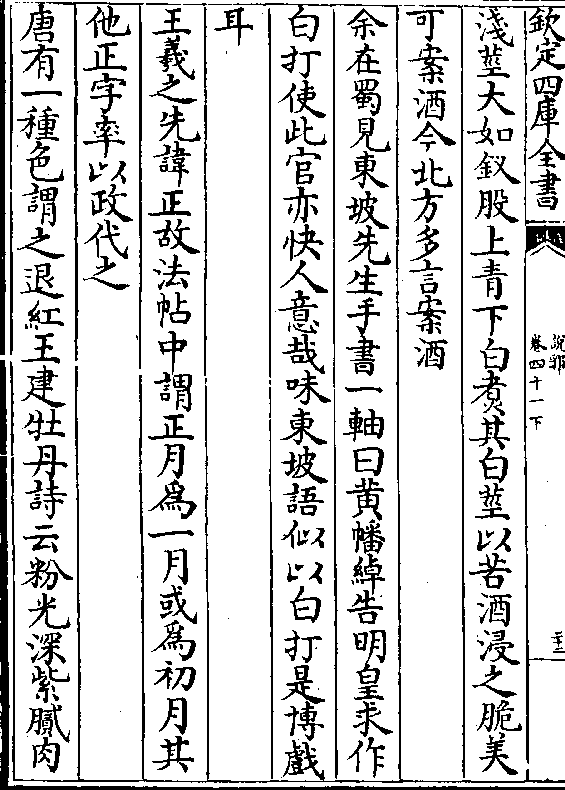 欽定四庫全書
說郛
卷四十一下
淺莖大如釵股上青下白煑其白莖以苦酒浸之脆美
可案酒今北方多言案酒
余在蜀見東坡先生手書一軸曰黃幡綽告明皇求作
白打使此官亦快人意哉味東坡語似以白打是博戲
耳
王羲之先諱正故法帖中謂正月為一月或為初月其
他正字率以政代之
唐有一種色謂之退紅王建牡丹詩云粉光深紫膩肉